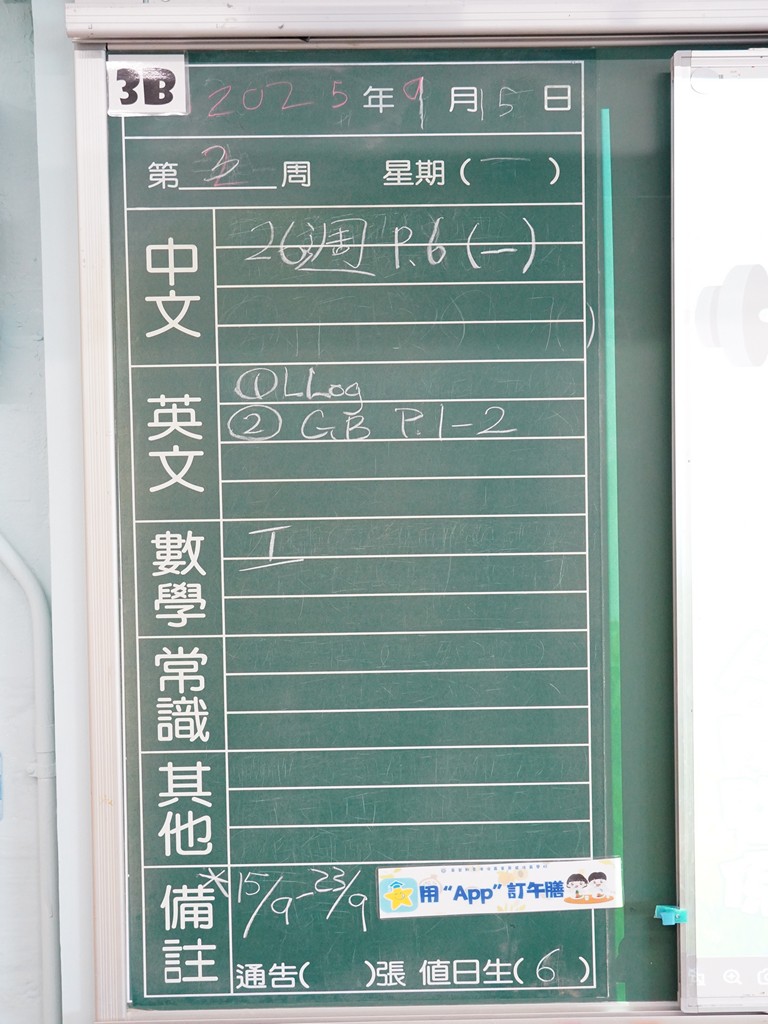 3B
2025年9月15日
第3周 星期(一)
中文
26週 P.6(一)
英文
①LLog
②GB P.1-2
數學
I
常識
其他
備註
*15/9-23/9
用“App”訂午膳
通告( )張 值日生(6)